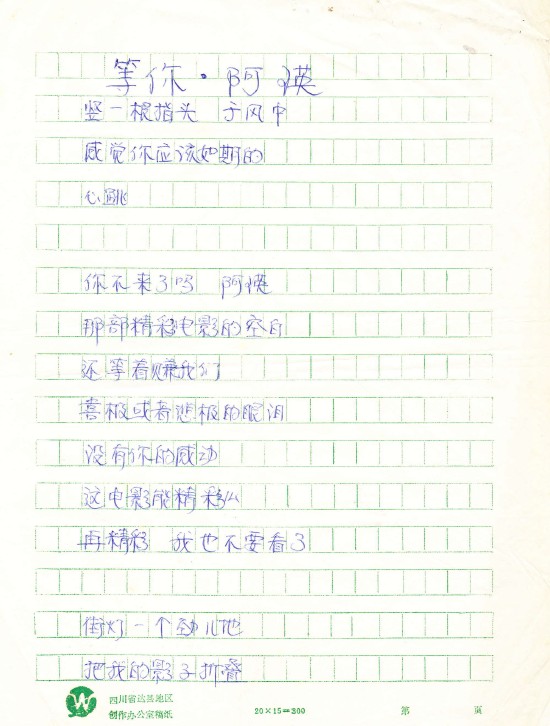 等你·阿瑛
竖一根指头 于风中
感觉你应该如期的
心跳
你不来了吗 阿瑛
那部精彩电影的空白
还等着赚我们
喜极或者悲极的眼泪
没有你的感动
这电影能精彩么
再精彩 我也不要看了
街灯一个劲儿地
把我的影子折叠
四川省达县地区
创作办公室稿纸
20×15=300
第 页